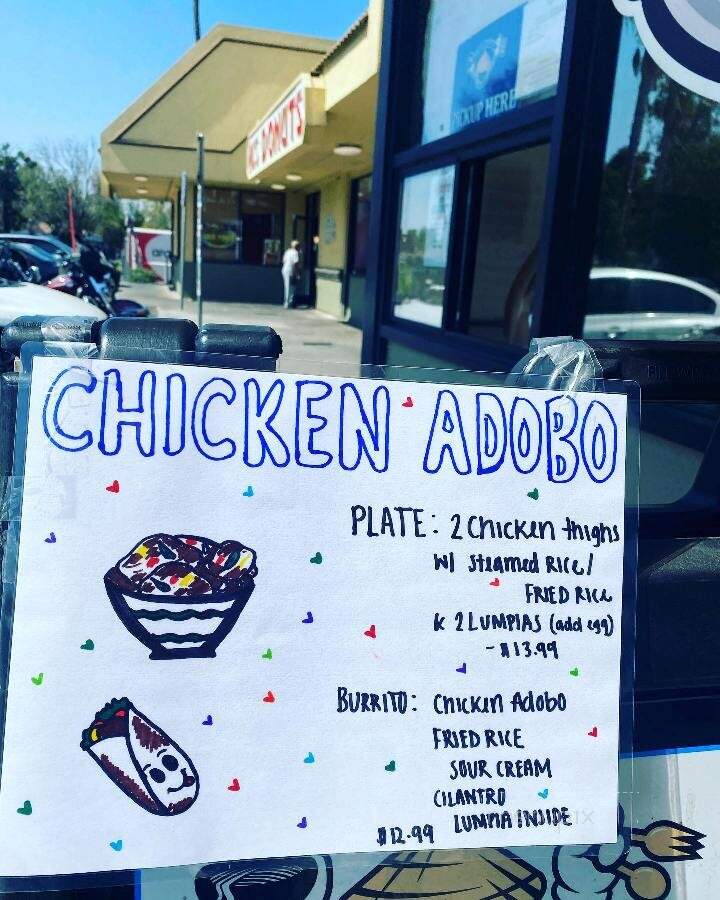 DONUTS
PICKUP HERE
CHICKEN ADOBO
PLATE: 2 Chicken thighs
W/ Steamed RICE/
FRIED RICE
& 2 LUMPIAS (add egg)
- $13.99
BURRITO: Chicken Adobo
FRIED RICE
SOUR CREAM
CILANTRO
LUMPIA INSIDE
$12.99